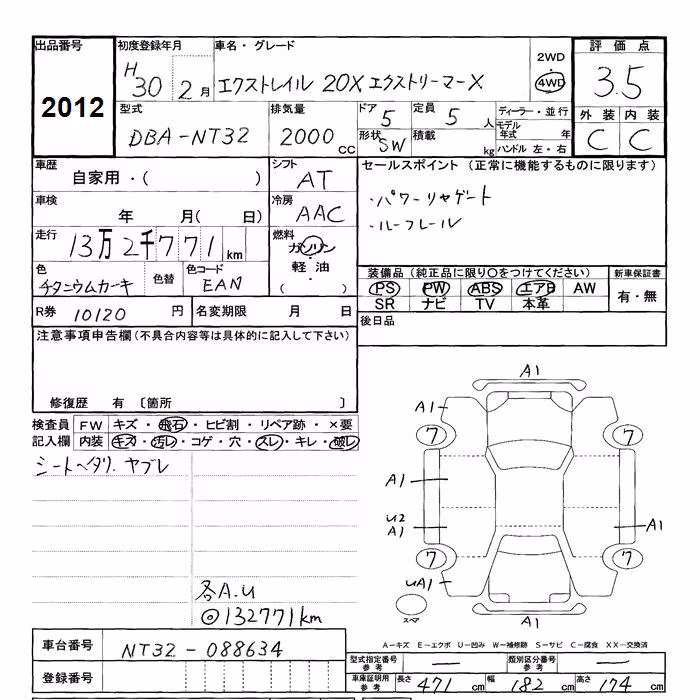 出品番号 初度登録年月 車名・グレード 2WD 評価点
2012 H30 2月 エクストレイル 20X エクストリーマーX 4WD 3.5
型式 排気量 ドア 5 定員 5人 ディーラー・並行 外装 内装
DBA-NT32 2000cc 形状 SW 積載 kg モデル年式 年 ハンドル 左・右 C C
車歴 シフト セールスポイント (正常に機能するものに限ります)
自家用・( ) AT
車検 冷房 ・パワーリヤゲート
年 月( 日) AAC ・ルーフレール
走行 13万2千771km 燃料 ガソリン・軽油 ( )
色 チタニウムカーキ 色替 色コード EAN
装備品 (純正品に限り〇をつけてください) 新車保証書
PS PW ABS エアB AW 有・無
SR ナビ TV 本革
R券 10120円 名変期限 月 日 後日品
注意事項申告欄(不具合内容等は具体的に記入して下さい)
修復歴 有 〔箇所 〕
検査員 FW キズ・飛石・ヒビ割・リペア跡・×要
記入欄 内装 キズ・汚レ・コゲ・穴・スレ・キレ・破レ
シートヘタリ. ヤブレ
各A.U
◎132771km
A1
A1
7 7
A1
U2
A1 A1
7 7
UA1
スペア
A1
A-キズ E-エクボ U-凹み W-補修跡 S-サビ C-腐食 XX-交換済
車台番号 NT32-088634
型式指定番号 参考 — 類別区分番号 参考 —
登録番号
車庫証明用 参考 長さ 471cm 幅 182cm 高さ 174cm